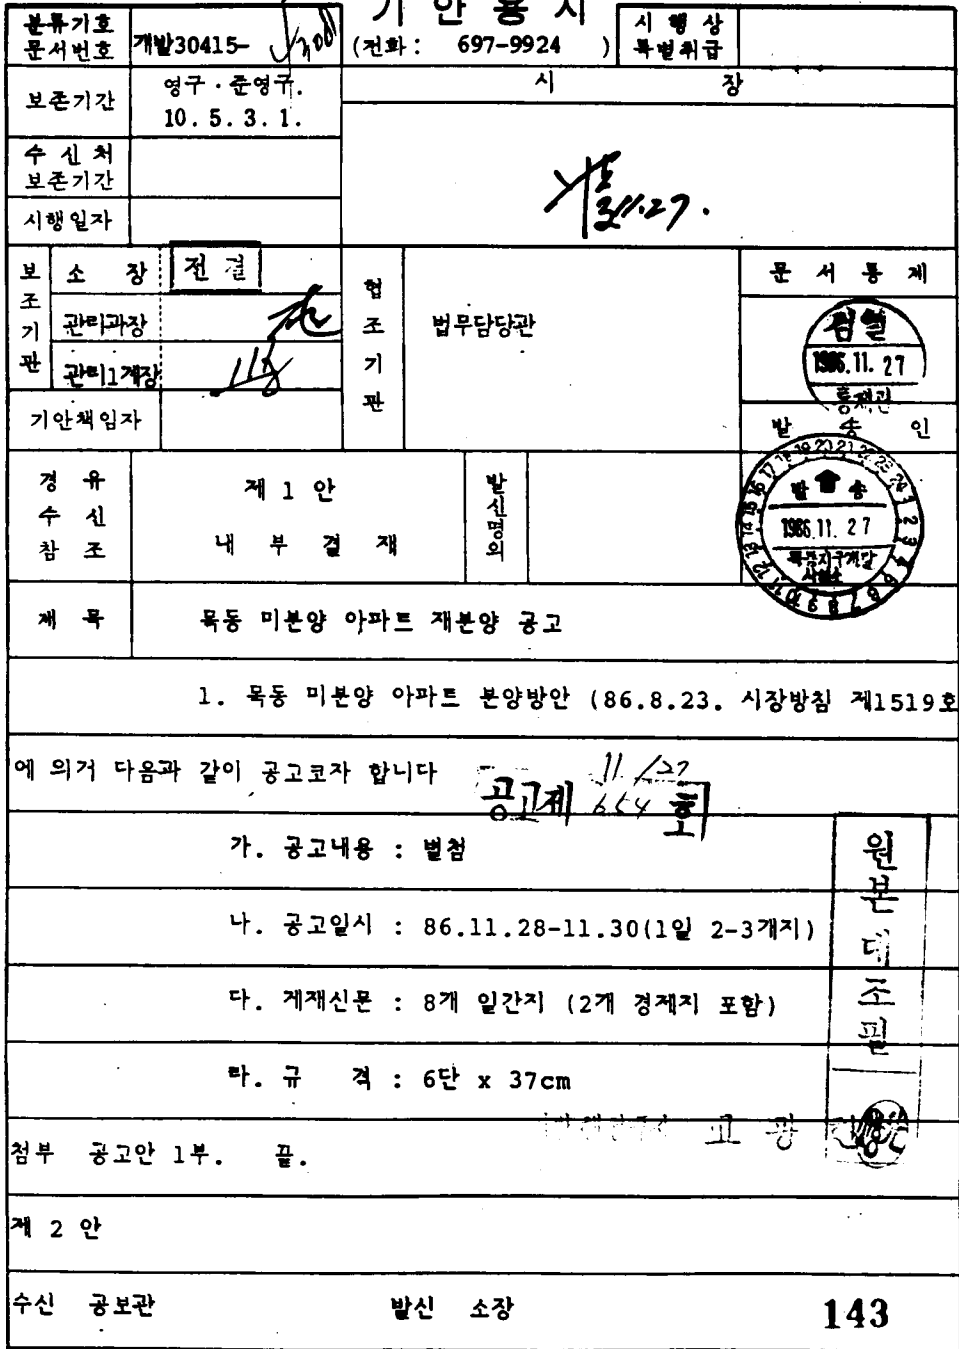 기 안 용 지
분류기호
문서번호
개발30415-
(전화 : 697-9924 )
시 행 상
특별취급
보존기간
영구 · 준영구.
10. 5. 3. 1.
시 장
수 신 처
보존기간
시행일자
11.27.
보조기관
소 장
전결
관리과장
관리1계장
기안책임자
협조기관
법무담당관
문 서 통 제
검열
1986.11.27
통제관
발 송 인
발 송
1986.11.27
경 유
수 신
참 조
제 1 안
내 부 결 재
발신명의
제 목
목동 미분양 아파트 재분양 공고
1. 목동 미분양 아파트 분양방안 (86.8.23. 시장방침 제1519호
에 의거 다음과 같이 공고코자 합니다
11/27
공고제 654 호
가. 공고내용 : 별첨
나. 공고일시 : 86.11.28-11.30(1일 2-3개지)
다. 게재신문 : 8개 일간지 (2개 경제지 포함)
라. 규 격 : 6단 x 37cm
원본대조필
첨부 공고안 1부. 끝.
제 2 안
수신 공보관 발신 소장
143